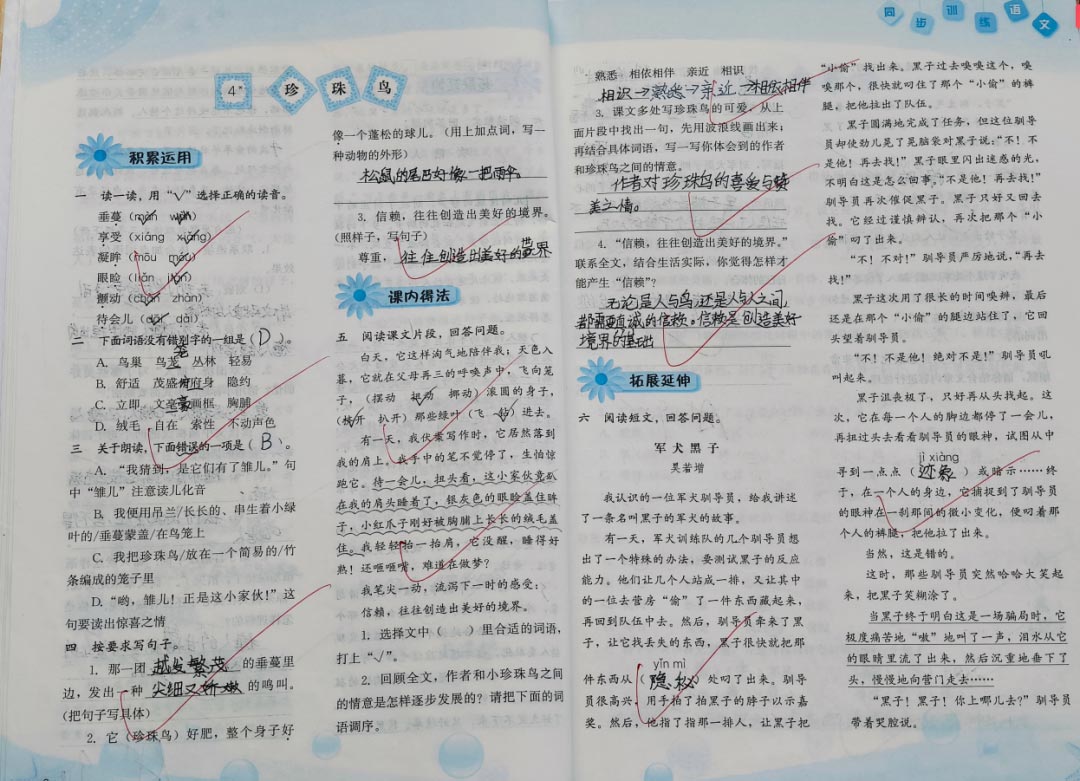 同步训练语文
4* 珍珠鸟
积累运用
一 读一读，用“√”选择正确的读音。
垂蔓（màn wàn）
享受（xiāng xiǎng）
凝眸（mōu móu）
眼睑（liǎn jiǎn）
颤动（chàn zhàn）
待会儿（dāi dài）
二 下面词语没有错别字的一组是（ D ）。
A. 鸟巢 鸟茏 丛林 轻易
笼
B. 舒适 茂盛 府身 隐约
俯
C. 立即 文豪 画框 胸脯
D. 绒毛 自在 索性 不动声色
三 关于朗读，下面错误的一项是（ B ）。
A. “我猜到，是它们有了雏儿。”句
中“雏儿”注意读儿化音
B. 我便用吊兰/长长的、串生着小绿
叶的/垂蔓蒙盖/在鸟笼上
C. 我把珍珠鸟/放在一个简易的/竹
条编成的笼子里
D. “哟，雏儿！正是这小家伙！”这
句要读出惊喜之情
四 按要求写句子。
1. 那一团 越发繁茂 的垂蔓里
边，发出一种 尖细又娇嫩 的鸣叫。
（把句子写具体）
2. 它（珍珠鸟）好肥，整个身子好
像一个蓬松的球儿。（用上加点词，写一
种动物的外形）
松鼠的尾巴好像一把雨伞。
3. 信赖，往往创造出美好的境界。
（照样子，写句子）
尊重， 往往创造出美好的世界
课内得法
五 阅读课文片段，回答问题。
白天，它这样淘气地陪伴我；天色入
暮，它就在父母再三的呼唤声中，飞向笼
子，（摆动 扭动 挪动）滚圆的身子，
（挤开 扒开）那些绿叶（飞 钻）进去。
有一天，我伏案写作时，它居然落到
我的肩上。我手中的笔不觉停了，生怕惊
跑它。待一会儿，扭头看，这小家伙竟趴
在我的肩头睡着了，银灰色的眼睑盖住眸
子，小红爪子刚好被胸脯上长长的绒毛盖
住。我轻轻抬一抬肩，它没醒，睡得好
熟！还咂咂嘴，难道在做梦？
我笔尖一动，流泻下一时的感受：
信赖，往往创造出美好的境界。
1. 选择文中（ ）里合适的词语，
打上“√”。
2. 回顾全文，作者和小珍珠鸟之间
的情意是怎样逐步发展的？请把下面的词
语调序。
熟悉 相依相伴 亲近 相识
相识→熟悉→亲近→相依相伴
3. 课文多处写珍珠鸟的可爱，从上
面片段中找出一句，先用波浪线画出来；
再结合具体词语，写一写你体会到的作者
和珍珠鸟之间的情意。
作者对珍珠鸟的喜爱与赞
美之情。
4. “信赖，往往创造出美好的境界。”
联系全文，结合生活实际，你觉得怎样才
能产生“信赖”？
无论是人与鸟，还是人与人之间，
都需要真诚的信赖。信赖是创造美好
境界的基础
拓展延伸
六 阅读短文，回答问题。
军犬黑子
吴若增
我认识的一位军犬驯导员，给我讲述
了一条名叫黑子的军犬的故事。
有一天，军犬训练队的几个驯导员想
出了一个特殊的办法，要测试黑子的反应
能力。他们让几个人站成一排，又让其中
的一位去营房“偷”了一件东西藏起来，
再回到队伍中去。然后，驯导员牵来了黑
子，让它找丢失的东西，黑子很快就把那
yǐn mì
件东西从（ 隐秘 ）处叼了出来。驯导
员很高兴，用手拍了拍黑子的脖子以示嘉
奖。然后，他指了指那一排人，让黑子把
“小偷”找出来。黑子过去嗅嗅这个，嗅
嗅那个，很快就叼住了那个“小偷”的裤
腿，把他拉出了队伍。
黑子圆满地完成了任务，但这位驯导
员却使劲儿晃了晃脑袋对黑子说：“不！不
是他！再去找！”黑子眼里闪出迷惑的光，
不明白这是怎么回事。“不是他！再去找！”
驯导员再次催促黑子。黑子只好又回去
找。它经过谨慎辨认，再次把那个“小
偷”叼了出来。
“不！不对！”驯导员严厉地说，“再去
找！”
黑子这次用了很长的时间嗅辨，最后
还是在那个“小偷”的腿边站住了，它回
头望着驯导员。
“不！不是他！绝对不是！”驯导员吼
叫起来。
黑子沮丧极了，只好再从头找起。这
次，它在每一个人的脚边都停了一会儿，
再扭过头去看看驯导员的眼神，试图从中
jì xiàng
寻到一点点（ 迹象 ）或暗示……终
于，在一个人的身边，它捕捉到了驯导员
的眼神在一刹那间的微小变化，便叼着那
个人的裤腿，把他拉了出来。
当然，这是错的。
这时，那些驯导员突然哈哈大笑起
来，把黑子笑糊涂了。
当黑子终于明白这是一场骗局时，它
极度痛苦地“嗷”地叫了一声，泪水从它
的眼睛里流了出来，然后沉重地垂下了
头，慢慢地向营门走去……
“黑子！黑子！你上哪儿去？”驯导员
带着笑腔说。